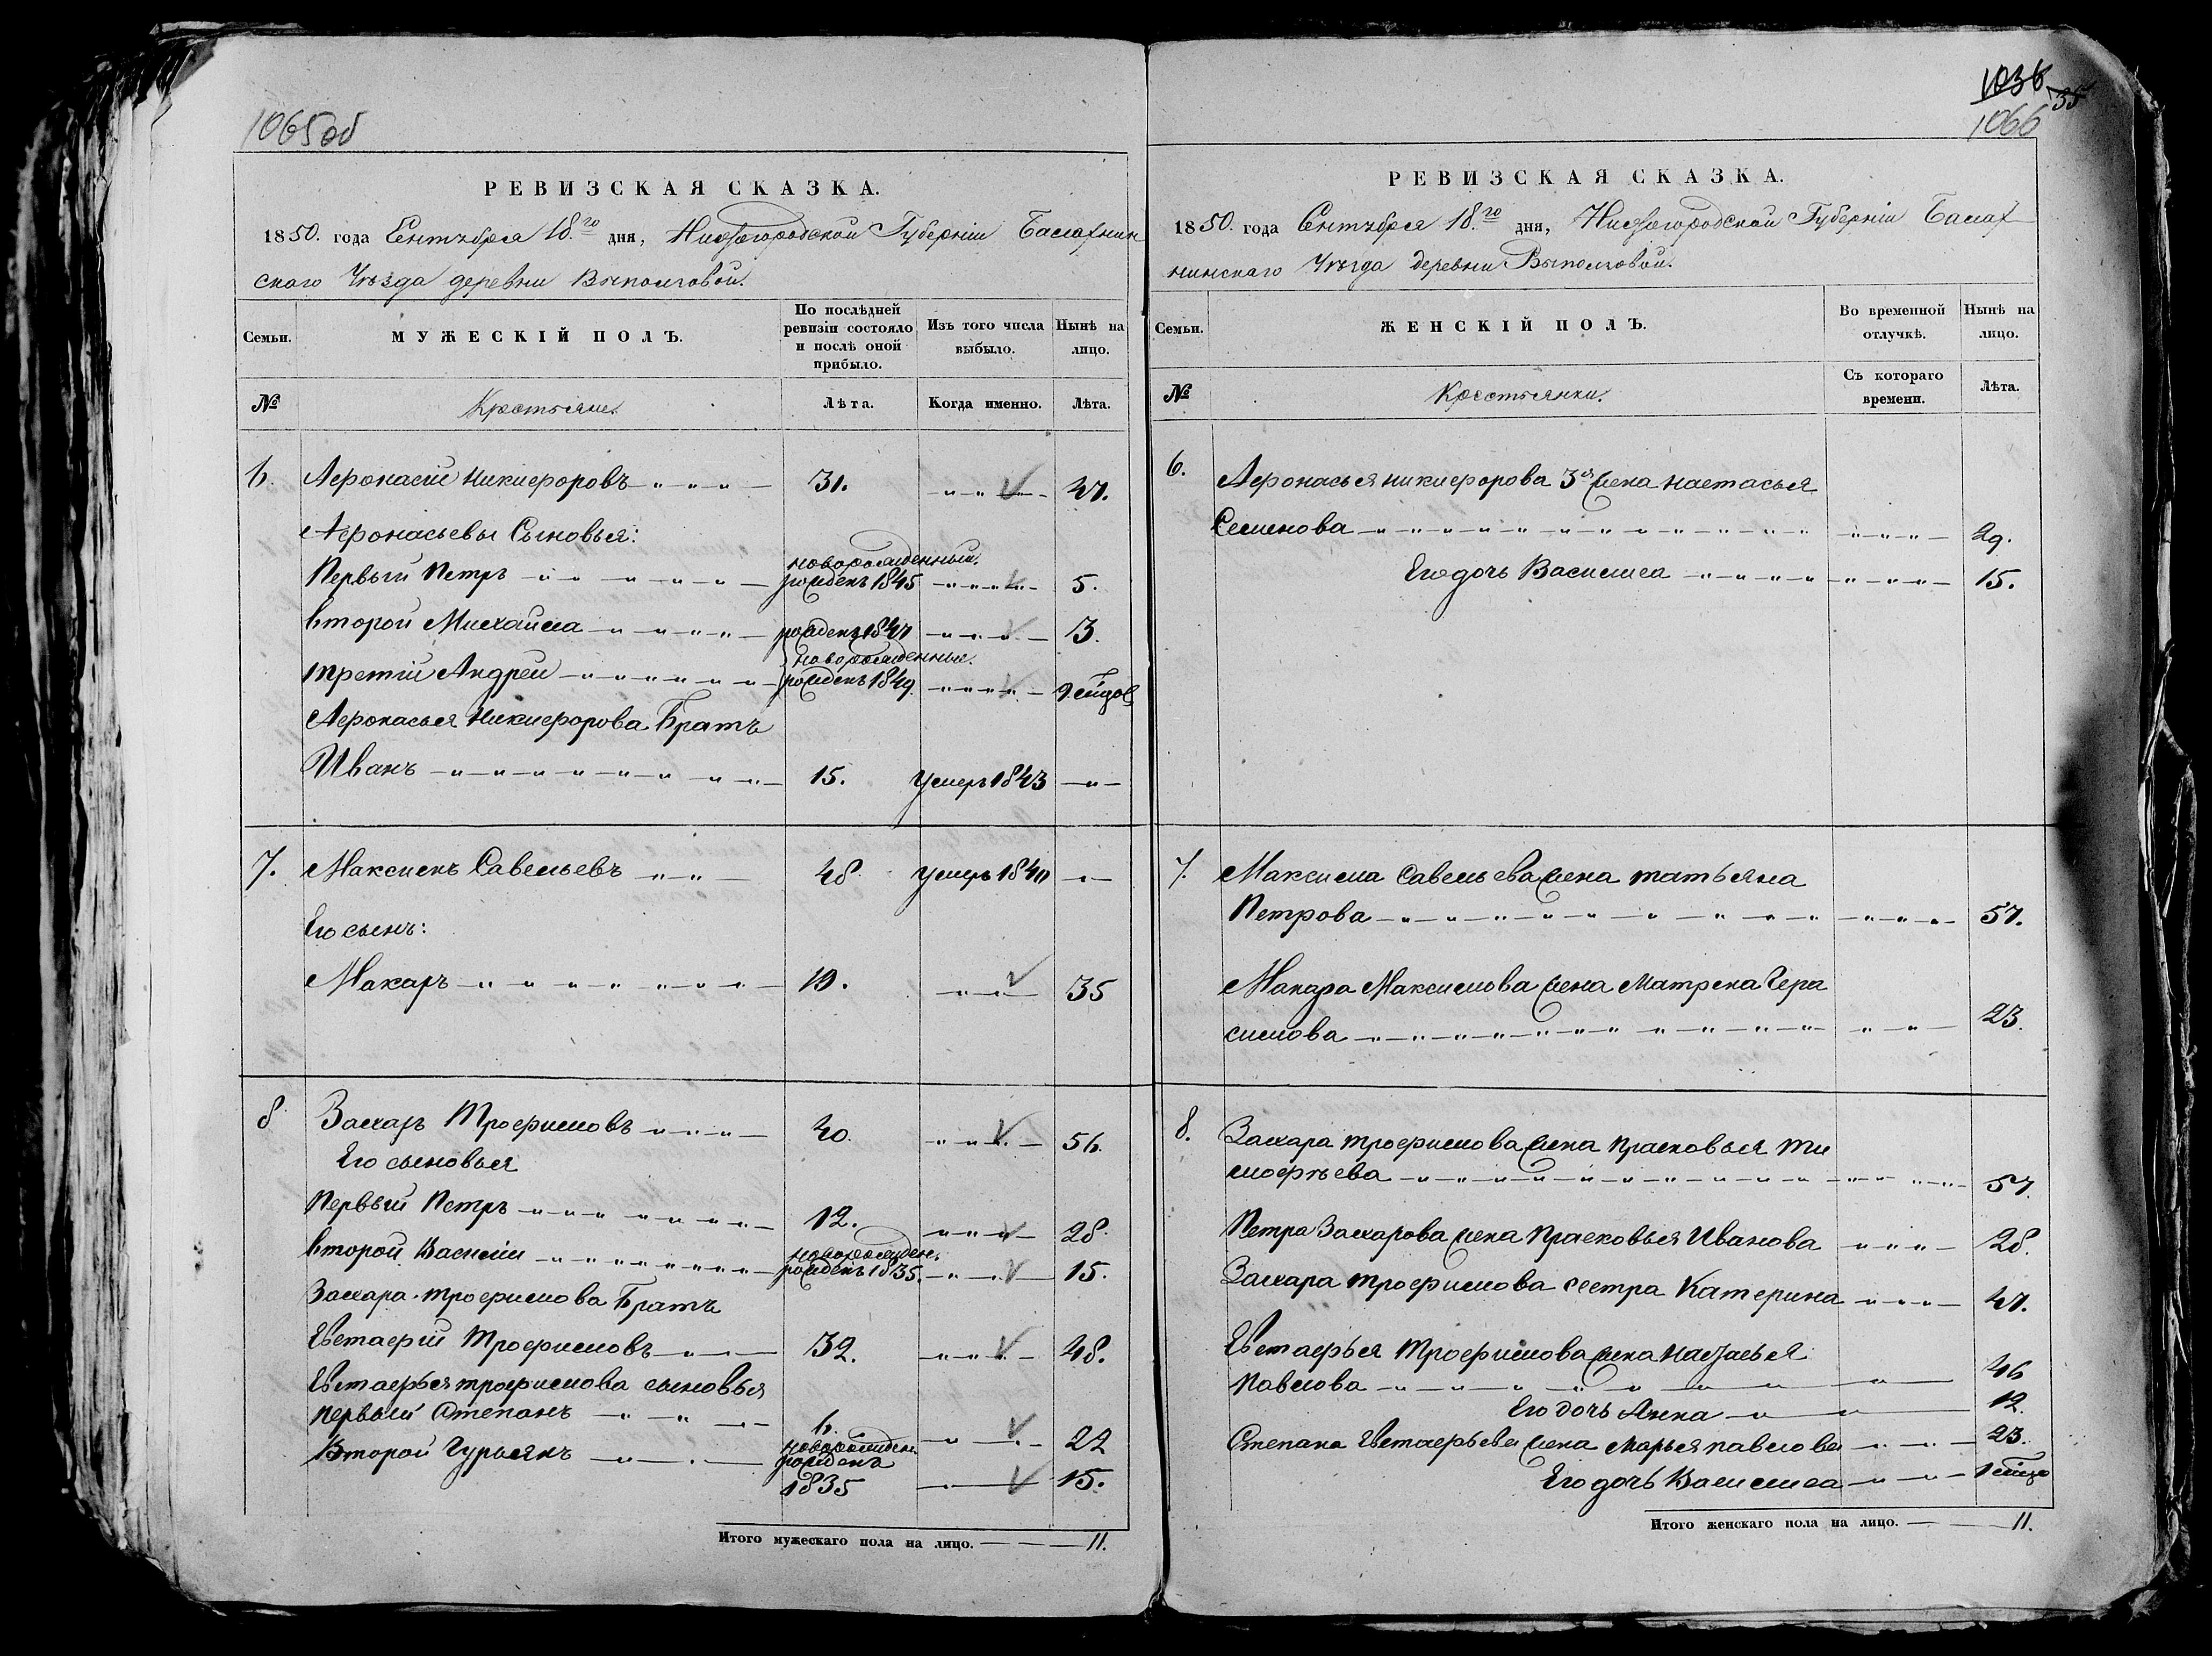 1065об
РЕВИЗСКАЯ СКАЗКА.
1850. года Сентября 18.го дня, Нижегородской Губерніи Балахнин
скаго Уѣзда деревни Выползовой.
Семьи.
МУЖЕСКІЙ ПОЛЪ.
По послѣдней ревизіи состояло и послѣ оной прибыло.
Изъ того числа выбыло.
Нынѣ на лицо.
№
Крестьяне.
Лѣта.
Когда именно.
Лѣта.
6. Афонасій Никифоровъ 31. 47.
Афонасьевы Сыновья:
новорожденный.
Первый Петръ рожденъ 1845 5.
второй Михайла рожденъ 1847 3.
новорожденные.
третій Андрей рожденъ 1849. 9 мѣсцов
Афонасья Никифорова Братъ
Иванъ 15. умеръ 1843
7. Максимъ Савельевъ 48. умеръ 1840
Его сынъ:
Макаръ 19. 35
8 Захаръ Трофимовъ 40. 56.
Его сыновья
Первый Петръ 12. 28.
новорожден.
второй Василій рожденъ 1835. 15.
Захара Трофимова Братъ
Евстафій Трофимовъ 32. 48.
Евстафья трофимова сыновья
первый Степанъ 6. 22
новорожден.
Второй Гурьянъ рожденъ
1835 15.
Итого мужескаго пола на лицо. 11.
1036
35
1066
РЕВИЗСКАЯ СКАЗКА.
1850. года Сентября 18.го дня, Нижегородской Губерніи Балах
нинскаго Уѣзда деревни Выползовой.
Семьи.
ЖЕНСКІЙ ПОЛЪ.
Во временной отлучкѣ.
Нынѣ на лицо.
№
Крестьянки.
Съ котораго времени.
Лѣта.
6. Афонасья никифорова 3я жена настасья
Семенова 29.
Его дочь Василиса 15.
7. Максима Савельева жена татьяна
Петрова 57.
Макара Максимова жена Матрена Гера
симова 23.
8. Захара трофимова жена прасковья ти
мофѣева 57.
Петра Захарова жена Прасковья Иванова 28.
Захара трофимова сестра Катерина 47.
Евстафья Трофимова жена настасья
павлова 46
Его дочь Анна 12.
Степана Евстафьева жена марья павлова 23.
Его дочь Василиса 1 мѣсцъ
Итого женскаго пола на лицо. 11.